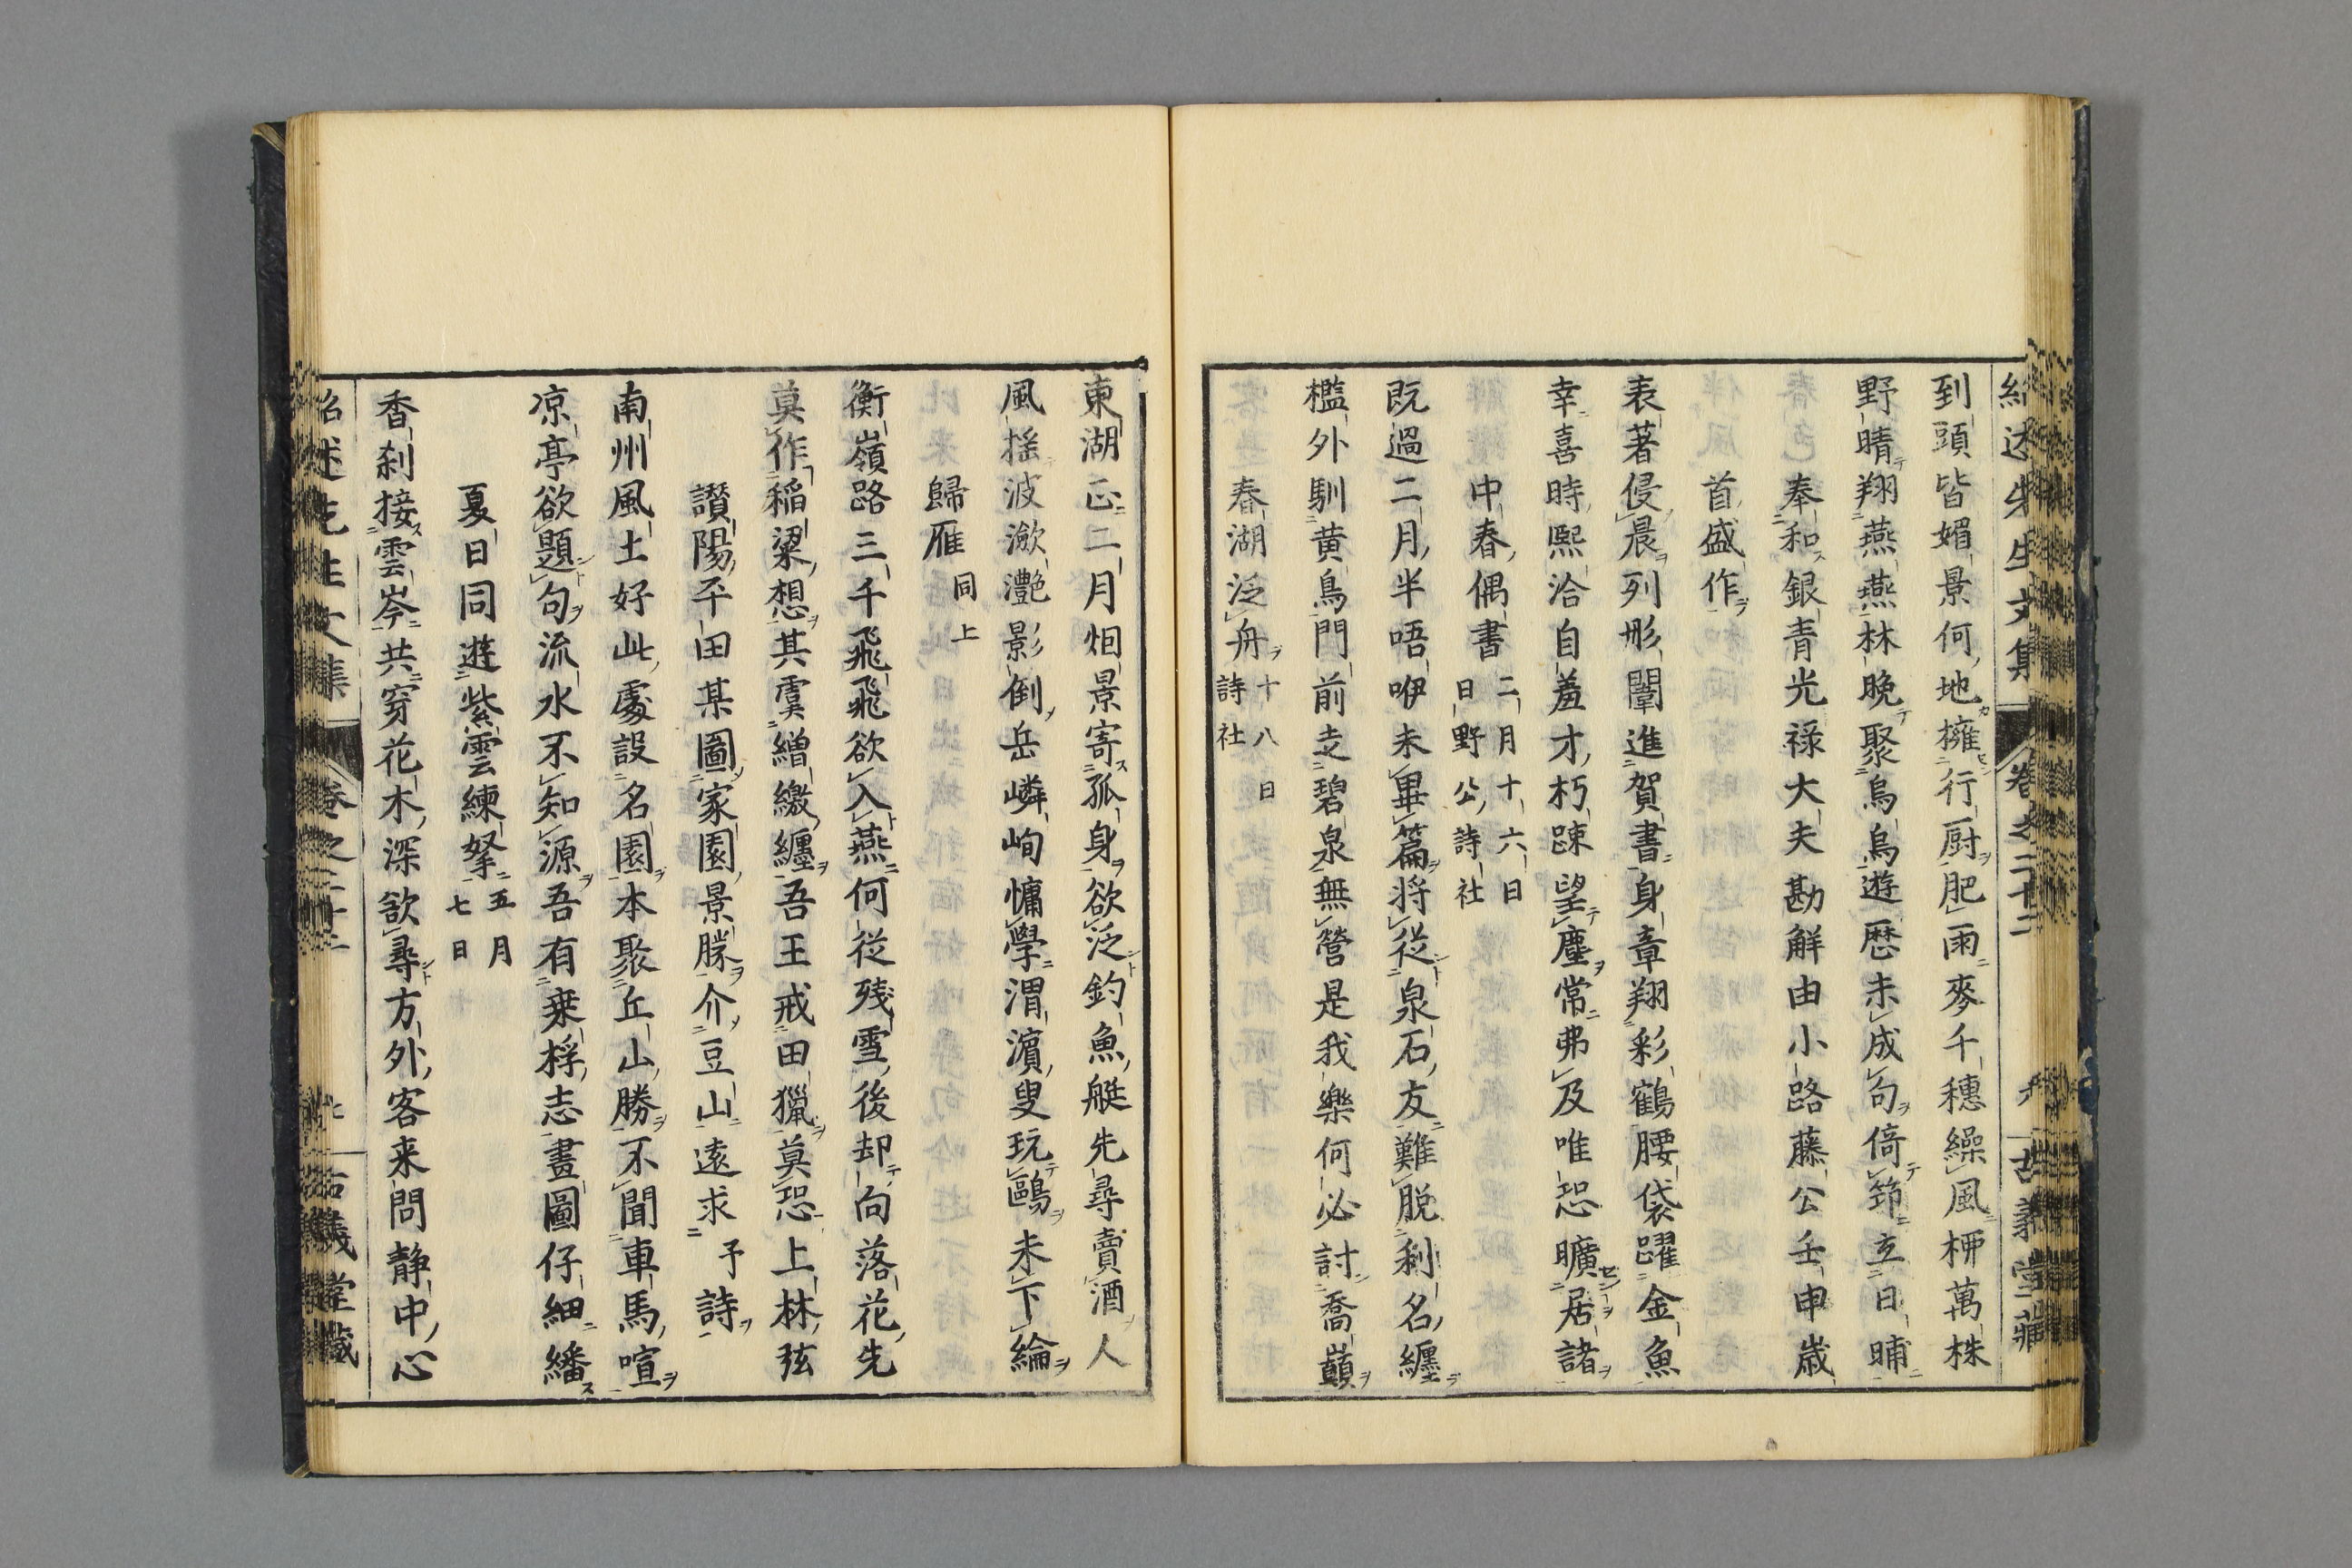 紹述先生文集 卷之二十二 古義堂藏
到頭皆媚景何地擁行厨肥雨麥千穗繰風栁萬株
野晴翔燕燕林晚聚烏烏遊歴未成句倚筇立日晡
奉和銀青光禄大夫勘解由小路藤公壬申歳
首盛作
表著侵晨列形闈進賀書身章翔彩鶴腰袋躍金魚
幸喜時熙洽自羞才朽踈望塵常弗及唯恐曠居諸
中春偶書二月十六日
日野公詩社
既過二月半唔咿未畢篇將從泉石友難脱利名纏
檻外馴黄鳥門前走碧泉無營是我樂何必討喬巔
春湖泛舟十八日
詩社
東湖正二月烟景寄孤身欲泛釣魚艇先尋賣酒人
風揺波瀲灔影倒岳嶙峋慵學渭濵叟玩鷗未下綸
歸雁同上
衡嶺路三千飛飛欲入燕何從残雪後却向落花先
莫作稲粱想其虞繒繳纏吾王戒田獵莫恐上林弦
讃陽平田某圖家園景勝介豆山遠求予詩
南州風土好此處設名園本聚丘山勝不聞車馬喧
凉亭欲題句流水不知源吾有乗桴志畫圖仔細繙
夏日同遊紫雲練拏五月
七日
香刹接雲岑共穿花木深欲尋方外客来問静中心
紹述先生文集 卷之二十二 古義堂藏